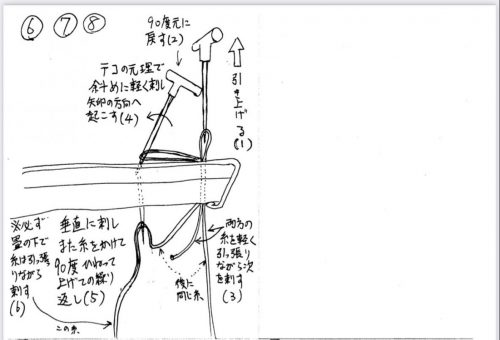 ⑥ ⑦ ⑧
90度元に
戻す(2)
引き上げる(1)
テコの元理で
斜めに軽く刺し
矢印の方向へ
起こす(4)
※必ず
畳の下で
糸は引っ張
りながら
刺す
(6)
垂直に刺し
また糸をかけて
90度ひねって
上げての繰り
返し(5)
両方の
糸を軽く
引っ張り
ながら次
を刺す
(3)
後に
同じ糸
この糸